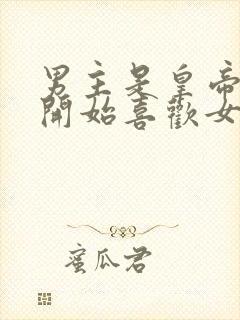 男主是皇帝
開始喜歡女
蜜瓜君